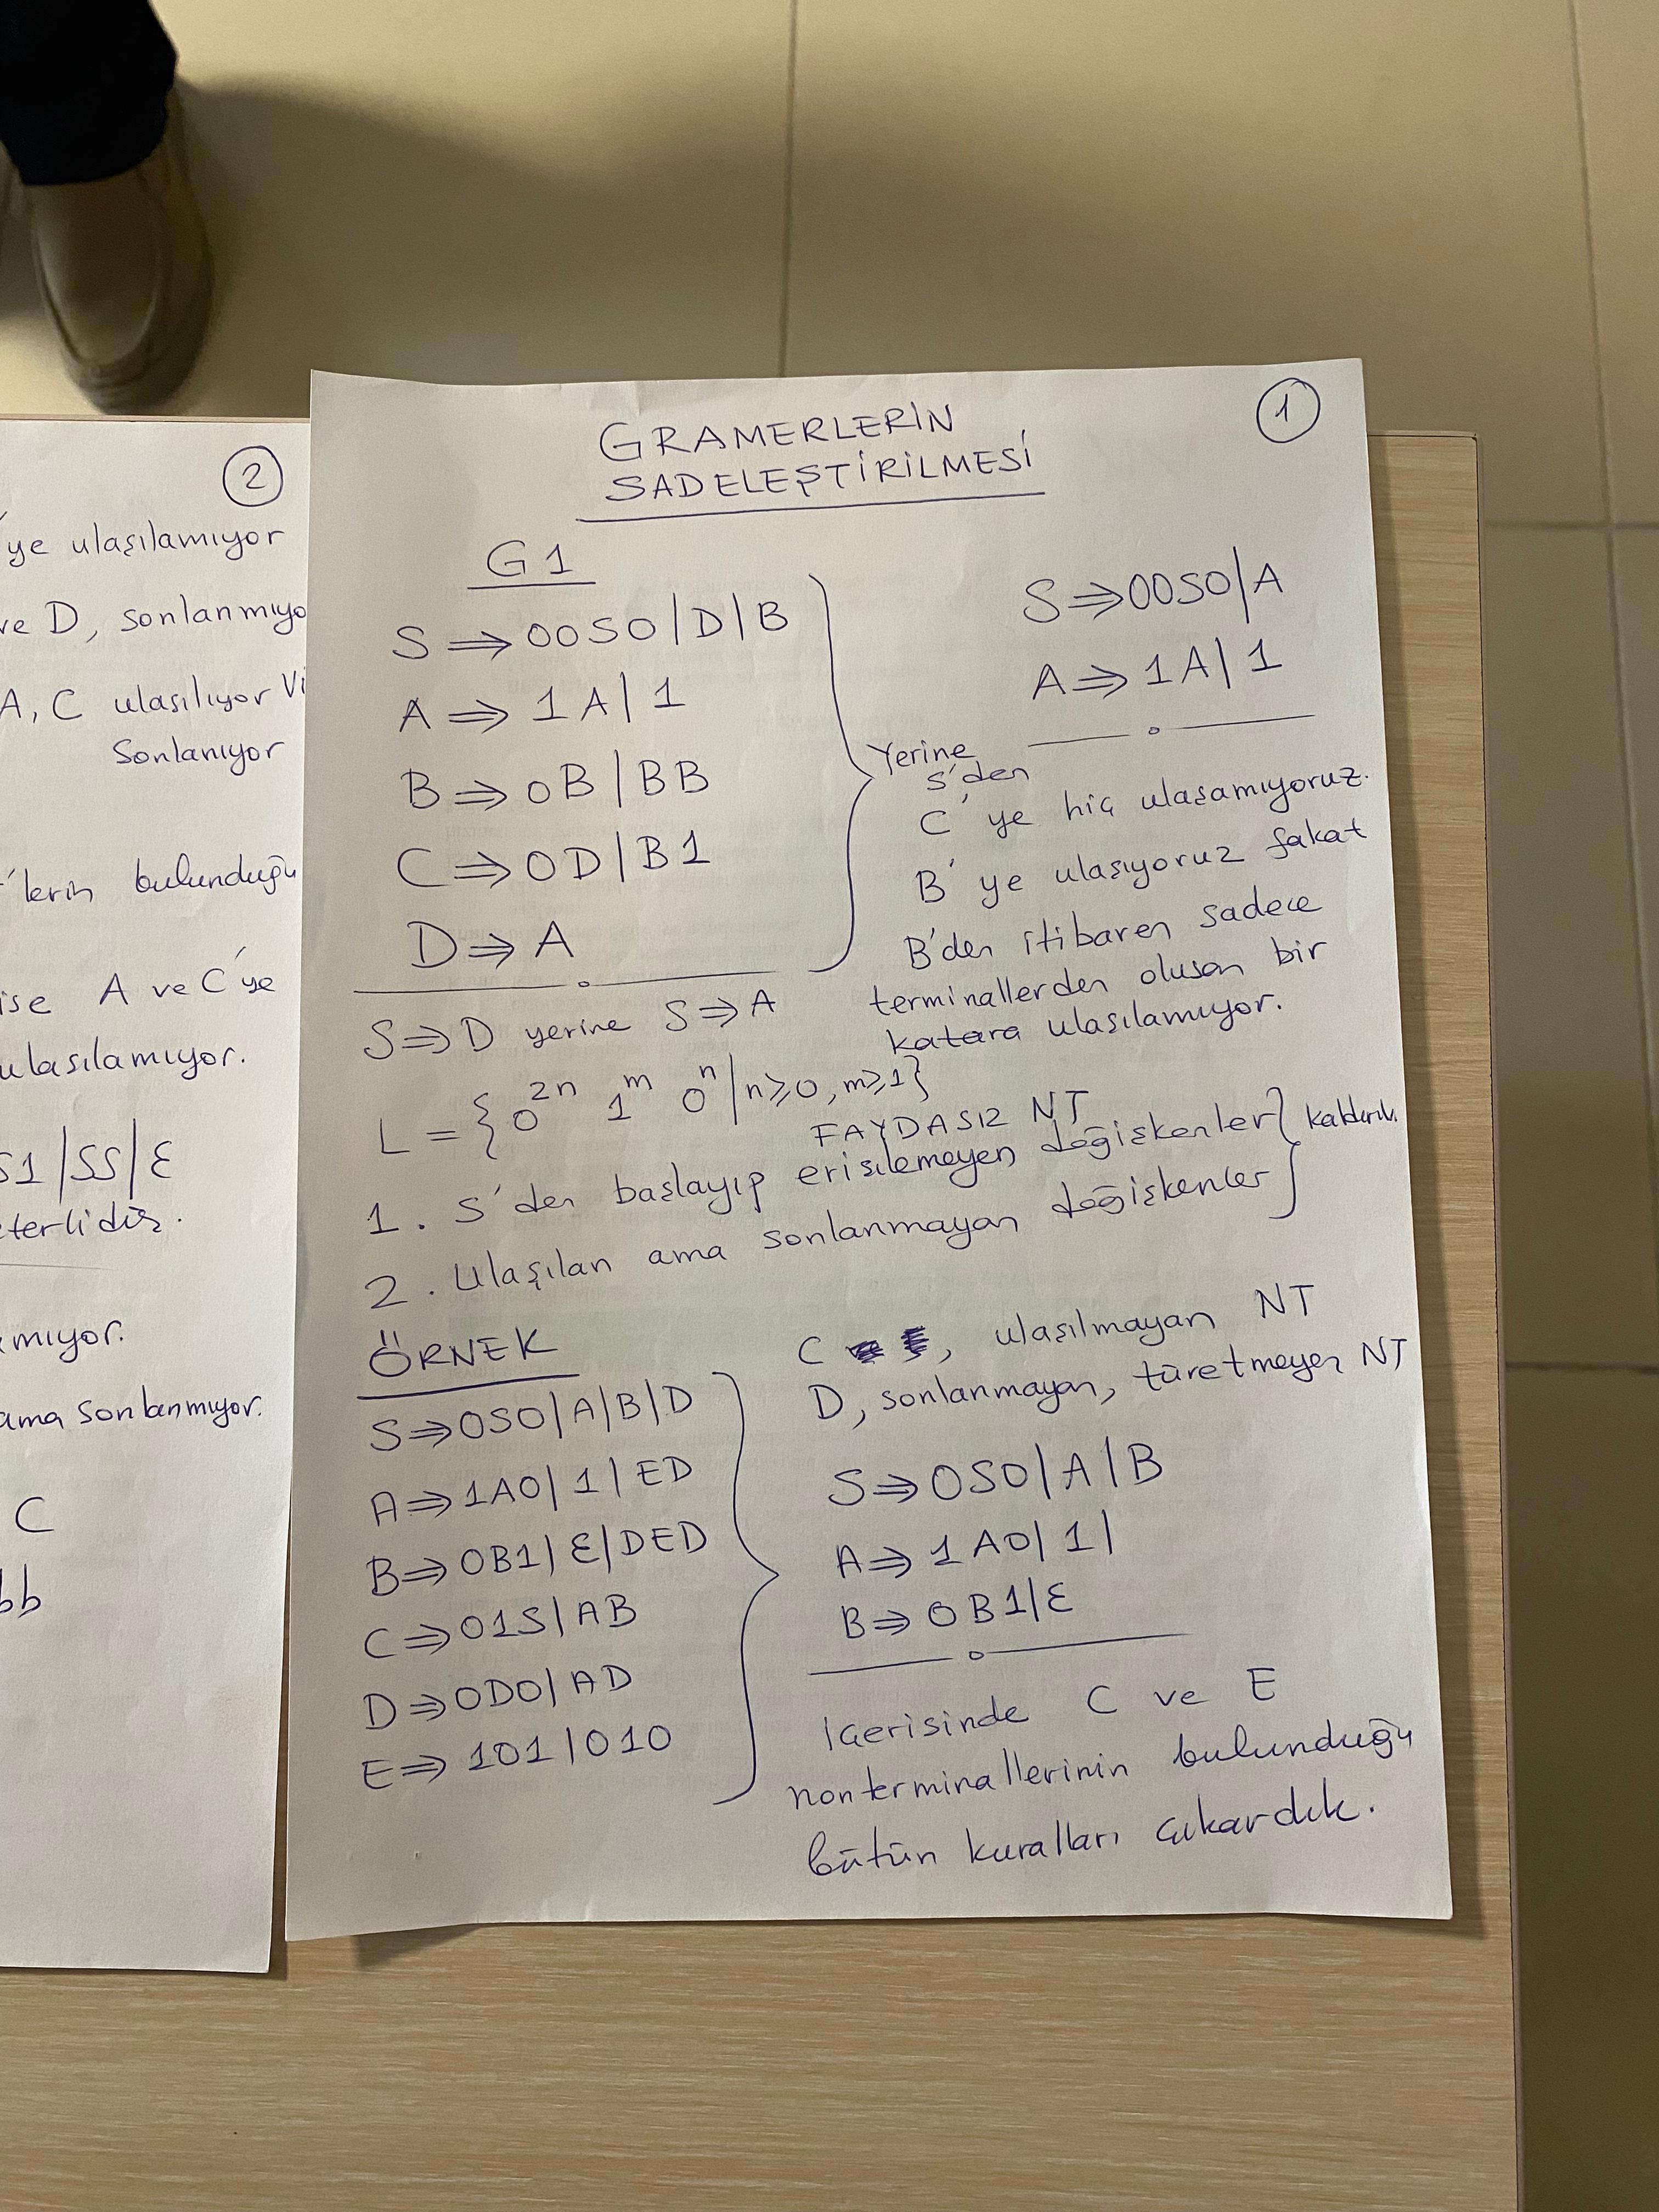 2
'ye ulaşılamıyor
ve D, sonlanmıyo
A, C ulaşılıyor
Sonlanıyor
'lerin bulunduğu
ise A ve C'ye
ulaşılamıyor.
S1|SS|Ɛ
eterlidir.
amıyor.
ama sonlanmıyor.
C
bb
1
GRAMERLERİN
SADELEŞTİRİLMESİ
G1
S ⇒ 00S0|D|B
A ⇒ 1A|1
B ⇒ 0B|BB
C ⇒ 0D|B1
D ⇒ A
S ⇒ D yerine S ⇒ A
S ⇒ 00S0|A
A ⇒ 1A|1
Yerine
S'den
C'ye hiç ulaşamıyoruz.
B'ye ulaşıyoruz fakat
B'den itibaren sadece
terminallerden oluşan bir
katara ulaşılamıyor.
L = {0^2n 1^m 0^n | n≥0, m≥1}
FAYDASIZ NT
1. S'den başlayıp erişilemeyen değişkenler } kaldırılır.
2. Ulaşılan ama sonlanmayan değişkenler
ÖRNEK
S ⇒ 0S0|A|B|D
A ⇒ 1A0|1|ED
B ⇒ 0B1|Ɛ|DED
C ⇒ 01S|AB
D ⇒ 0D0|AD
E ⇒ 101|010
C , ulaşılmayan NT
D, sonlanmayan, türetmeyen NT
S ⇒ 0S0|A|B
A ⇒ 1A0|1|
B ⇒ 0B1|Ɛ
İçerisinde C ve E
nonterminallerinin bulunduğu
bütün kuralları çıkardık.